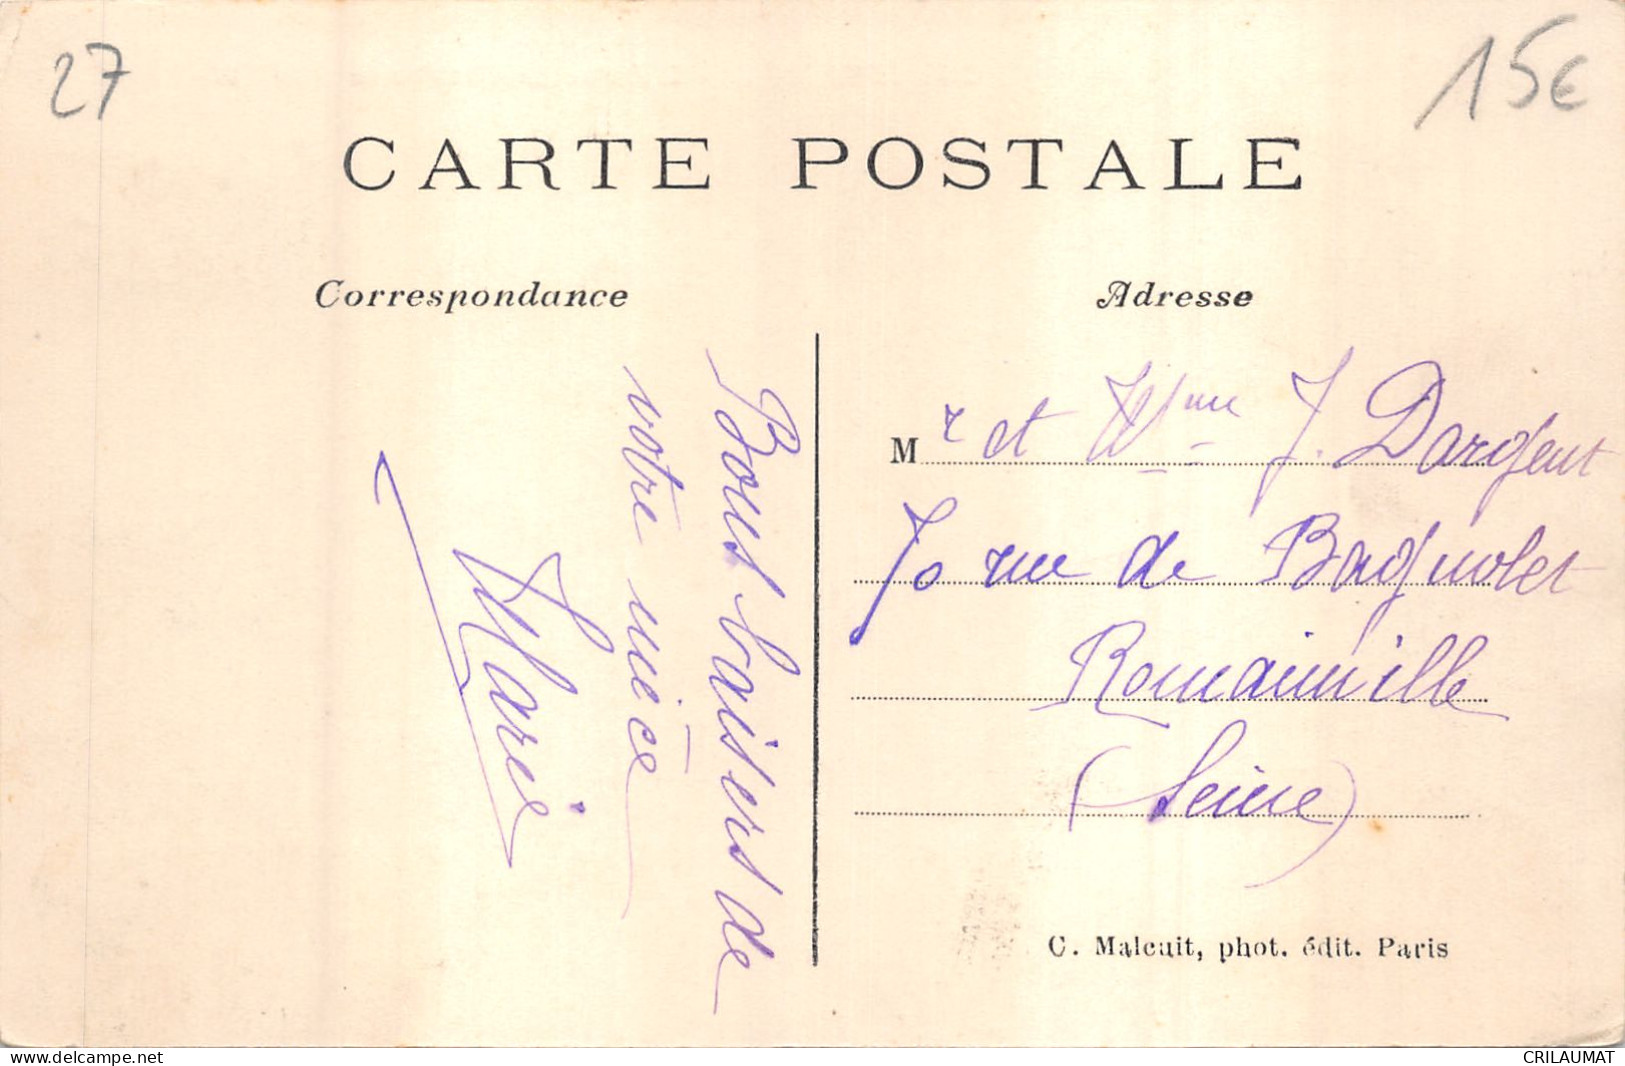 27
15€
CARTE POSTALE
Correspondance
Adresse
Bons baisers de
votre nièce
Marie
Mr et Mme J. Dargent
70 rue de Bagnolet
Romainville
(Seine)
C. Malcuit, phot. édit. Paris
www.delcampe.net
CRILAUMAT